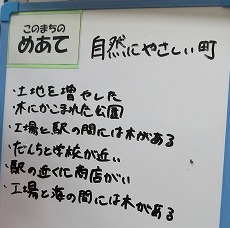 このまちの
めあて
自然にやさしい町
・土地を増やした
・木にかこまれた公園
・工場と駅の間には木がある
・だんちと学校が近い
・駅の近くに商店がい
・工場と海の間には木がある